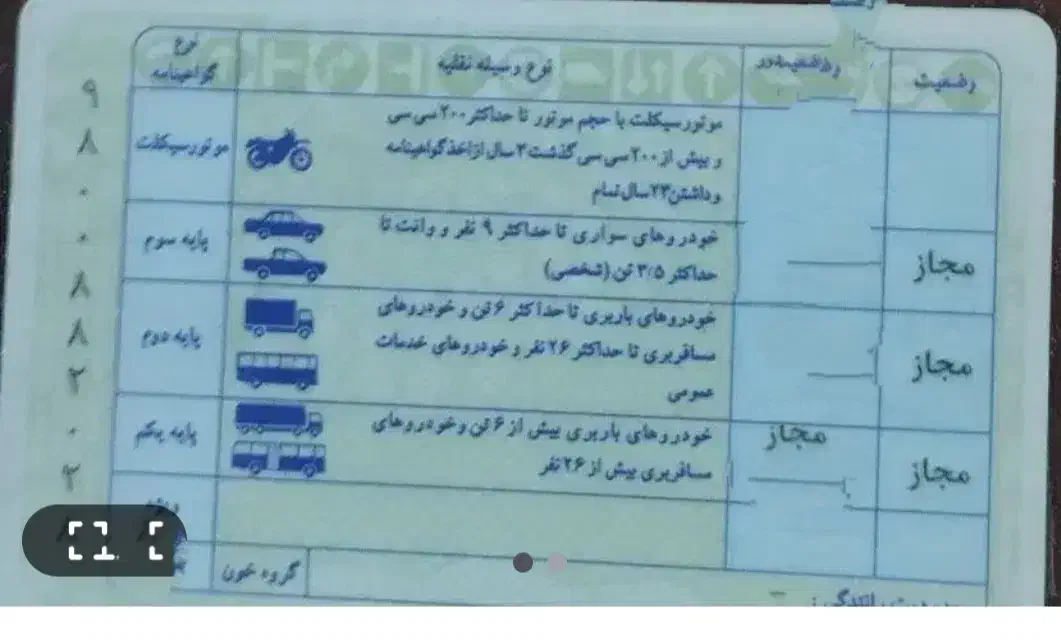 وضعیت
نوع وسیله نقلیه
نوع گواهینامه
موتورسیکلت با حجم موتور تا حداکثر ۲۰۰ سی سی
و بیش از ۲۰۰ سی سی گذشت ۲ سال از اخذ گواهینامه
و داشتن ۲۳ سال تمام
موتورسیکلت
مجاز
خودروهای سواری تا حداکثر ۹ نفر و وانت تا
حداکثر ۳/۵ تن (شخصی)
پایه سوم
مجاز
خودروهای باربری تا حداکثر ۶ تن و خودروهای
مسافربری تا حداکثر ۲۶ نفر و خودروهای خدمات
عمومی
پایه دوم
مجاز
مجاز
خودروهای باربری بیش از ۶ تن و خودروهای
مسافربری بیش از ۲۶ نفر
پایه یکم
گروه خون
۹
۸
۰
۰
۸
۸
۲
۰
۲